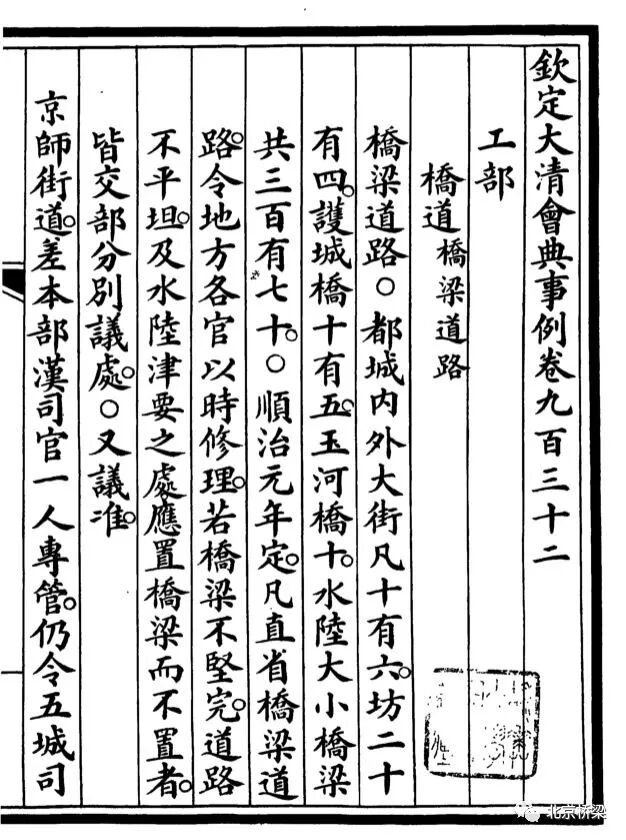 欽定大清會典事例卷九百三十二
工部
橋道橋梁道路
橋梁道路○都城內外大街凡十有六。坊二十
有四。護城橋十有五。玉河橋十。水陸大小橋梁
共三百有七十。○順治元年定。凡直省橋梁道
路。令地方各官以時修理。若橋梁不堅完。道路
不平坦。及水陸津要之處應置橋梁而不置者。
皆交部分別議處。○又議准。
京師街道。差本部漢司官一人專管。仍令五城司
北京桥梁